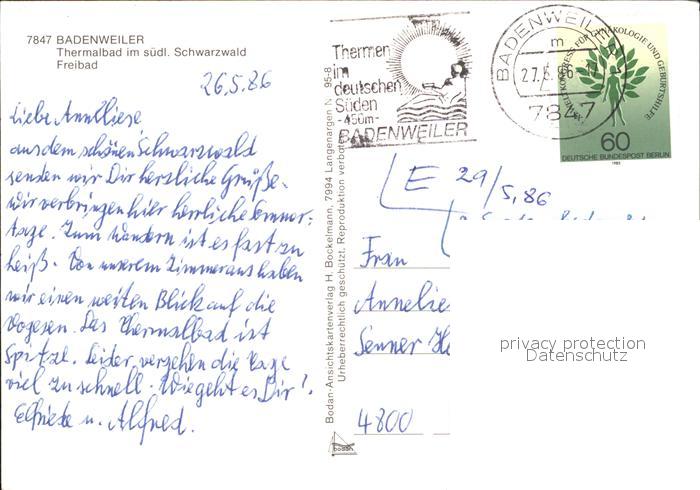 7847 BADENWEILER
Thermalbad im südl. Schwarzwald
Freibad
26.5.86
Liebe Annelliese
aus dem schönen Schwarzwald
senden wir Dir herzliche Grüße.
Wir verbringen hier herrliche Sommer-
tage. Zum Wandern ist es fast zu
heiß. Von unserem Zimmer aus haben
wir einen weiten Blick auf die
Vogesen. Das Thermalbad ist
Spitze. Leider vergehen die Tage
viel zu schnell. Wie geht es Dir?
Elfriede u. Alfred.
Bodan-Ansichtskartenverlag H. Bockelmann, 7994 Langenargen N 95-8
Urheberrechtlich geschützt. Reproduktion verbot
bodan
Thermen
im
deutschen
Süden
-450m-
BADENWEILER
BADENWEILER
m
27.5.86
7847
WELTKONGRESS FÜR GYNÄKOLOGIE UND GEBURTSHILFE
60
DEUTSCHE BUNDESPOST BERLIN
1985
E 29/5.86
Frau
Annelie
Senner He
4800
privacy protection
Datenschutz